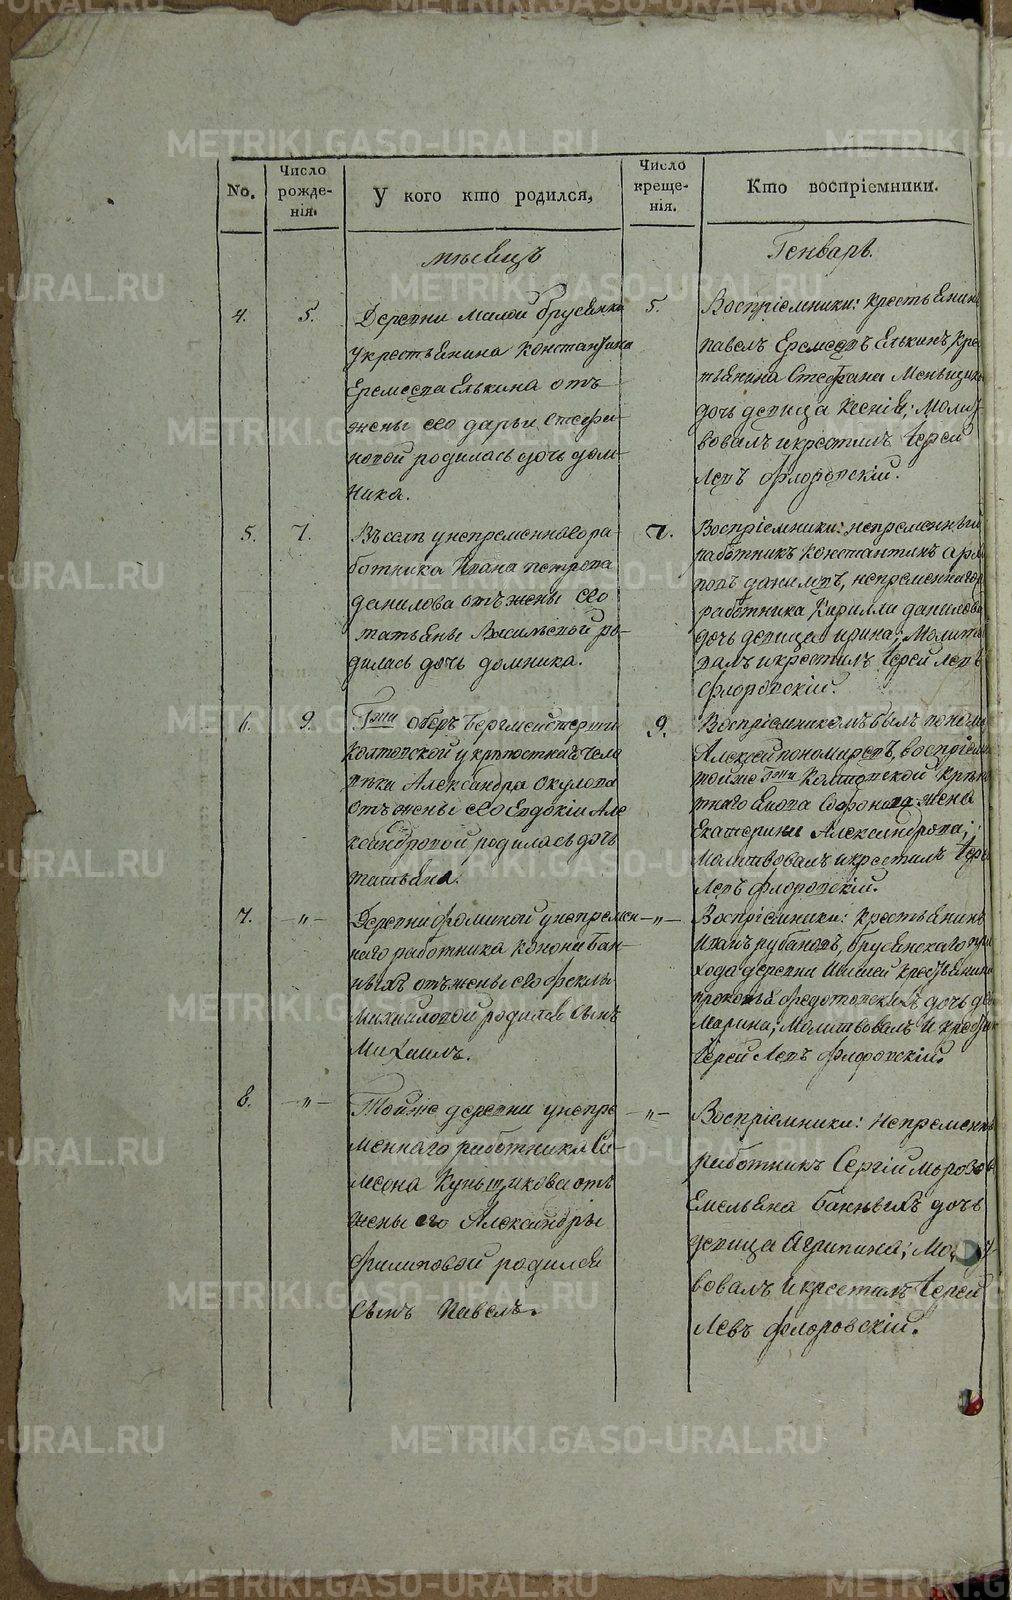 No.
Число рожде- нія.
У кого кто родился,
Число креще- нія.
Кто воспріемники.
мѣсяцъ
Генварь.
4.
5.
Деревни Малой брусянки
у крестьянина Константина
Еремеева Елькина отъ
жены его дарьи Стефа-
новой родилась дочь дом-
ника.
5.
Воспріемники: Крестьянинъ
павелъ Еремеевъ Елькинъ, кре
тьянина Стефана Меньщик
дочь девица Ксенія; Молит
вовалъ и крестилъ Іерей
Левъ Флоровскій.
5.
7.
Въ селе у непременнаго ра-
ботника Ивана петрова
данилова отъ жены его
татьяны Васильевой ро-
дилась дочь домника.
7.
Воспріемники: непременный
работникъ Константинъ
данилов, непременнаго
работника Кирилли данилова
дочь девица ирина; Молитв
валъ и крестилъ Іерей левъ
Флоровскій.
6.
9.
Гжи оберъ бергмейстерши
у крѣпостнаго чело
века Александра окулова
отъ жены его Евдокіи Але
ксандровой родилась дочь
татьяна.
9.
Воспріемникомъ былъ поном
Алексей пономаревъ, воспріем
той же Гжи крѣпо
тнаго жена
Екатерина Александрова;
Молитвовалъ и крестилъ Іере
Левъ флоровскій.
7.
—„—
Деревни фоминой у непремен
наго работника Конона бан-
ныхъ отъ жены его феклы
Михайловой родился сынъ
Михаилъ.
—„—
Воспріемники: Крестьянинъ
Иванъ рубановъ, брусянскаго при
хода деревни крестьянина
прокопья федотовскихъ дочь де
Марина; Молитвовалъ и
Іерей Левъ Флоровскій.
8.
—„—
Той же деревни у непре
меннаго работника Си-
меона Купьщикова отъ
жены его Александры
Филиповой родился
сынъ Павелъ.
—„—
Воспріемники: Непременн
работникъ Сергій Морозов
Емельяна банныхъ дочь
девица Агрипина; Мо
вовалъ и крестилъ Іерей
Левъ Флоровскій.
METRIKI.GASO-URAL.RU